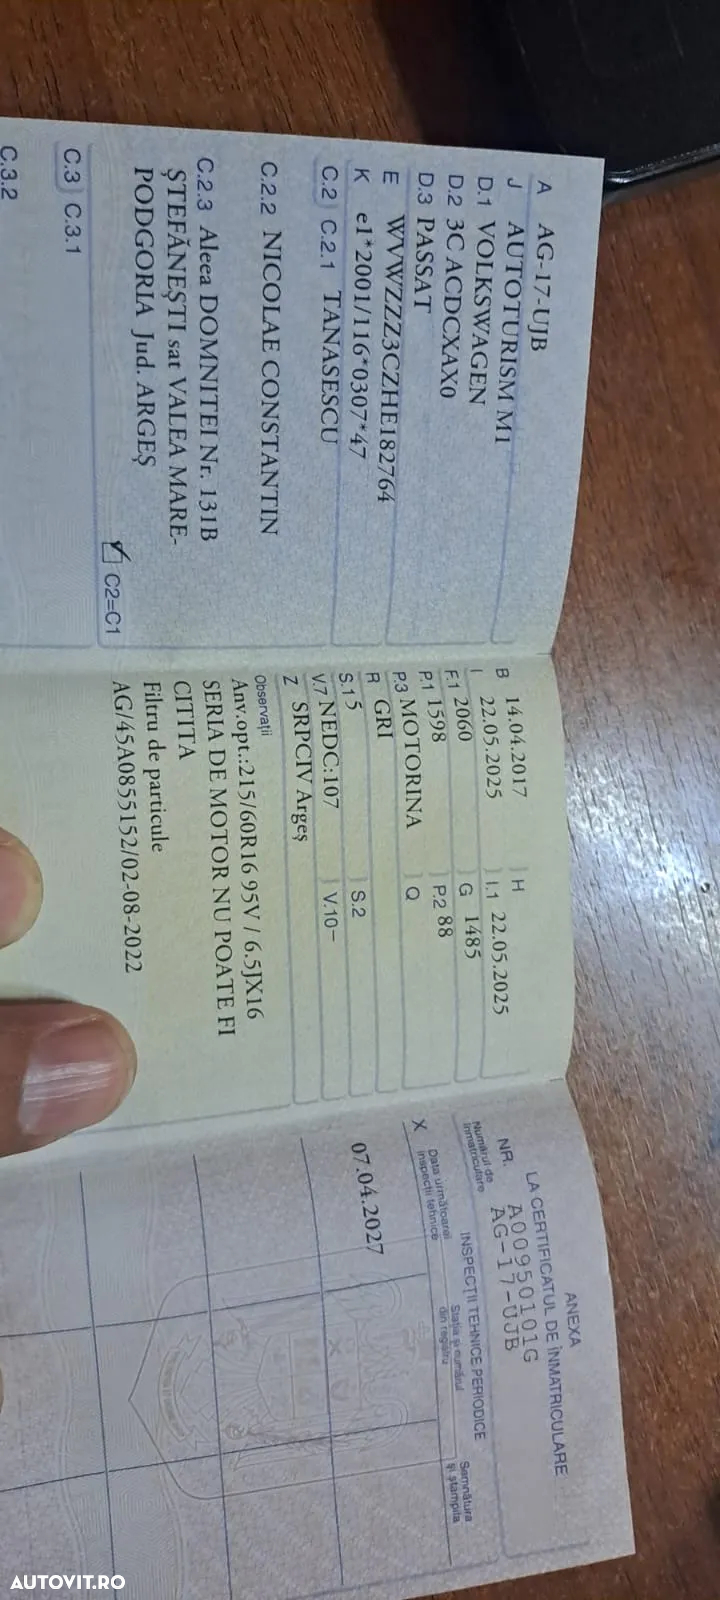 A AG-17-UJB
J AUTOTURISM M1
D.1 VOLKSWAGEN
D.2 3C ACDCXAX0
D.3 PASSAT
E WVWZZZ3CZHE182764
K e1*2001/116*0307*47
C.2 C.2.1 TANASESCU
C.2.2 NICOLAE CONSTANTIN
C.2.3 Aleea DOMNITEI Nr. 131B
ȘTEFĂNEȘTI sat VALEA MARE-
PODGORIA Jud. ARGEȘ
C2=C1
C.3 C.3.1
C.3.2
B 14.04.2017 H
I 22.05.2025 I.1 22.05.2025
F.1 2060 G 1485
P.1 1598 P.2 88
P.3 MOTORINA Q
R GRI
S.1 5 S.2
V.7 NEDC:107 V.10–
Z SRPCIV Argeș
Observații
Anv.opt.:215/60R16 95V / 6.5JX16
SERIA DE MOTOR NU POATE FI
CITITA
Filtru de particule
AG/45A0855152/02-08-2022
ANEXA
LA CERTIFICATUL DE ÎNMATRICULARE
NR. A00950101G
Numărul de înmatriculare AG-17-UJB
INSPECȚII TEHNICE PERIODICE
X Data următoarei inspecții tehnice
Stația și numărul din registru
Semnătura și ștampila
07.04.2027
AUTOVIT.RO